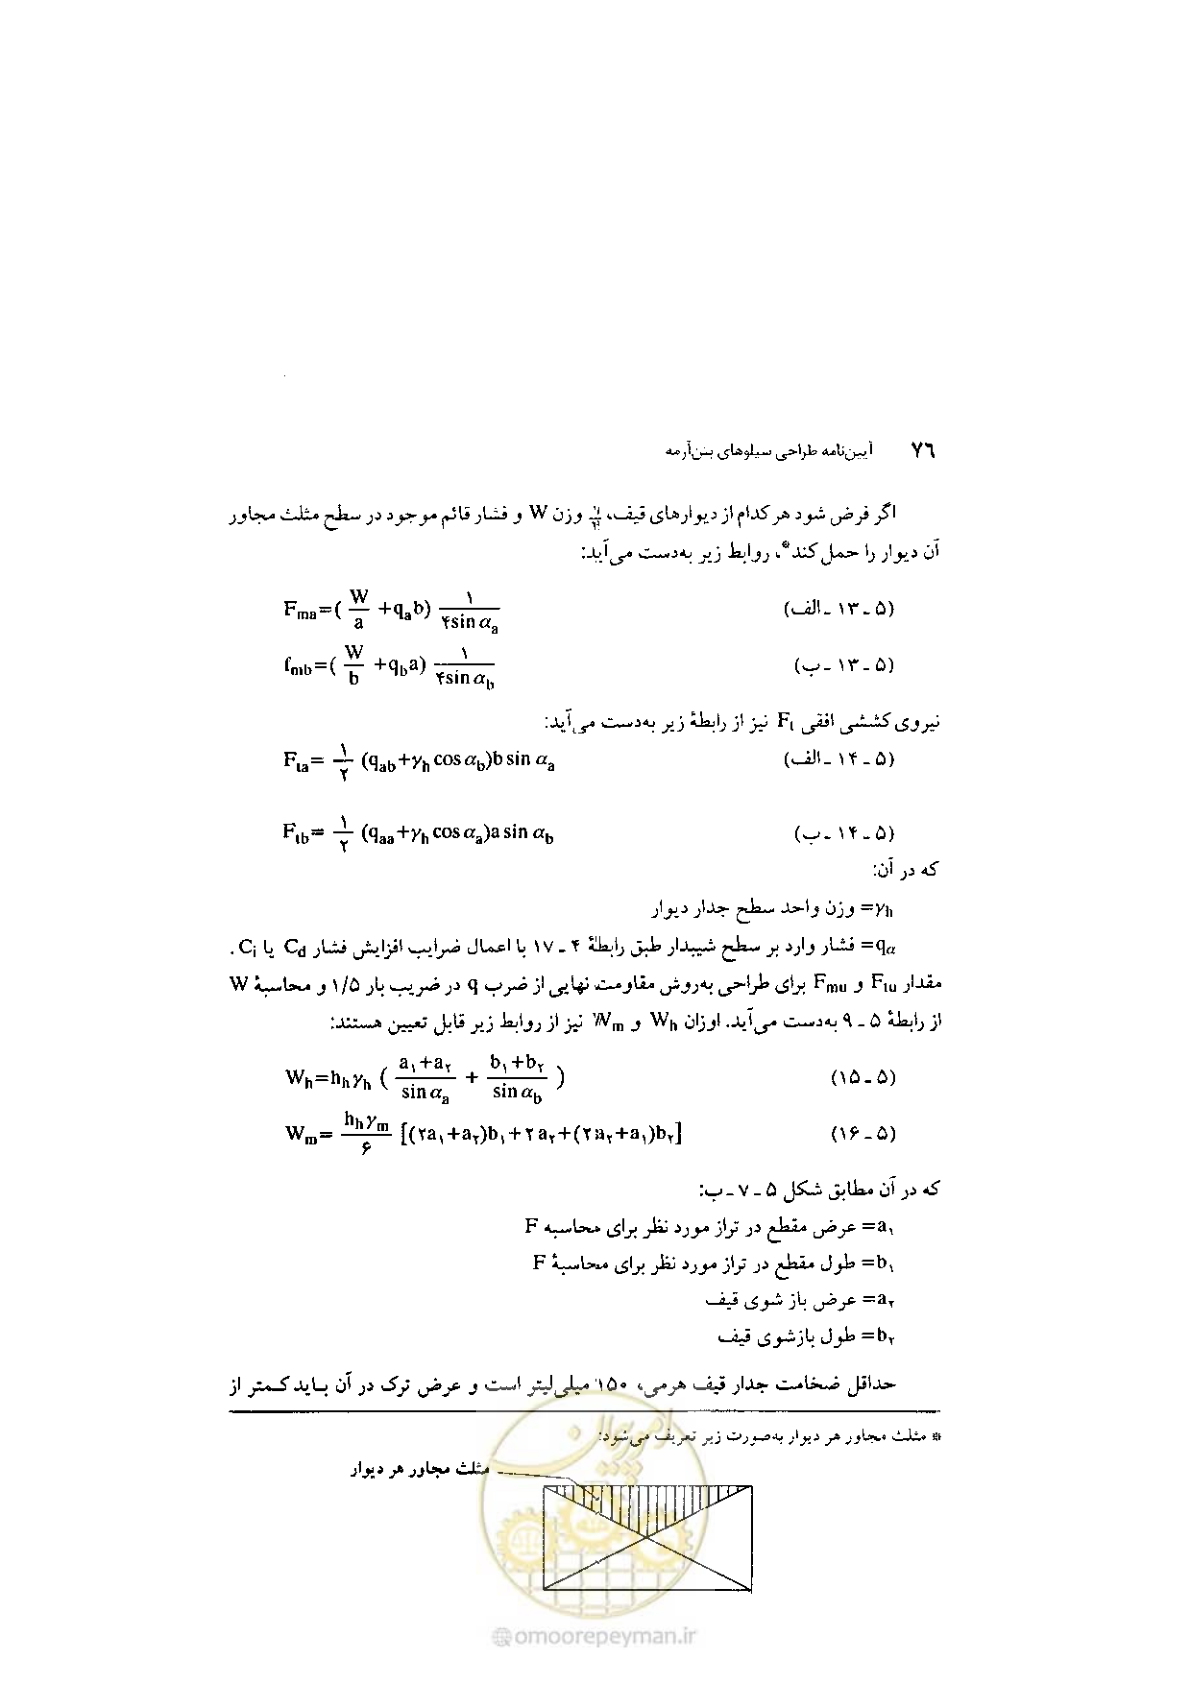 ۷۶ آیین‌نامه طراحی سیلوهای بتن‌آرمه
اگر فرض شود هرکدام از دیوارهای قیف، ۱/۴ وزن W و فشار قائم موجود در سطح مثلث مجاور
آن دیوار را حمل کند*، روابط زیر به‌دست می‌آید:
(۵ ـ ۱۳ ـ الف) Fma=( W/a +qab) ۱/۴sin αa
(۵ ـ ۱۳ ـ ب) fmb=( W/b +qba) ۱/۴sin αb
نیروی کششی افقی Ft نیز از رابطهٔ زیر به‌دست می‌آید:
(۵ ـ ۱۴ ـ الف) Fta= ۱/۲ (qab+γh cos αb)b sin αa
(۵ ـ ۱۴ ـ ب) Ftb= ۱/۲ (qaa+γh cos αa)a sin αb
که در آن:
γh= وزن واحد سطح جدار دیوار
qα= فشار وارد بر سطح شیبدار طبق رابطهٔ ۴ ـ ۱۷ با اعمال ضرایب افزایش فشار Cd یا Ci .
مقدار Ftu و Fmu برای طراحی به‌روش مقاومت نهایی از ضرب q در ضریب بار ۱/۵ و محاسبهٔ W
از رابطهٔ ۵ ـ ۹ به‌دست می‌آید. اوزان Wh و Wm نیز از روابط زیر قابل تعیین هستند:
(۱۵ ـ ۵) Wh=hhγh ( a۱+a۲/sin αa + b۱+b۲/sin αb )
(۱۶ ـ ۵) Wm= hhγm/۶ [(۲a۱+a۲)b۱+۲a۲+(۲a۲+a۱)b۲]
که در آن مطابق شکل ۵ ـ ۷ ـ ب:
a۱= عرض مقطع در تراز مورد نظر برای محاسبه F
b۱= طول مقطع در تراز مورد نظر برای محاسبهٔ F
a۲= عرض باز شوی قیف
b۲= طول بازشوی قیف
حداقل ضخامت جدار قیف هرمی، ۱۵۰ میلی‌لیتر است و عرض ترک در آن باید کمتر از
* مثلث مجاور هر دیوار به‌صورت زیر تعریف می‌شود:
مثلث مجاور هر دیوار
امور پیمان
@omoorepeyman.ir